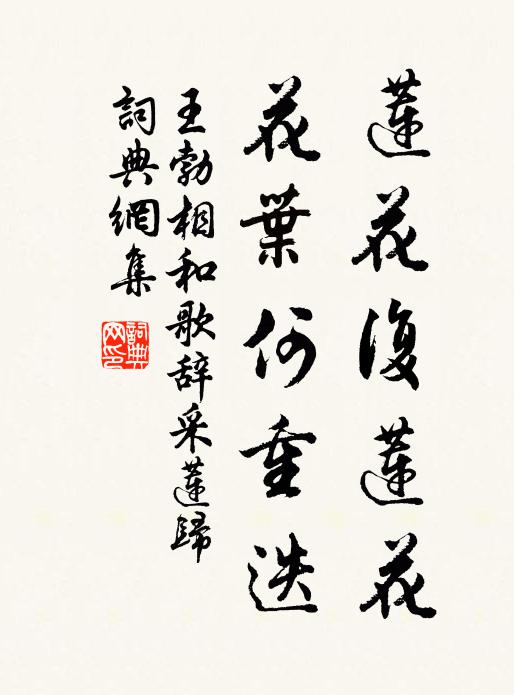 蓮花復蓮花
花葉何重迭
王勃相和歌辞采蓮歸
詞典網集
詞典網印